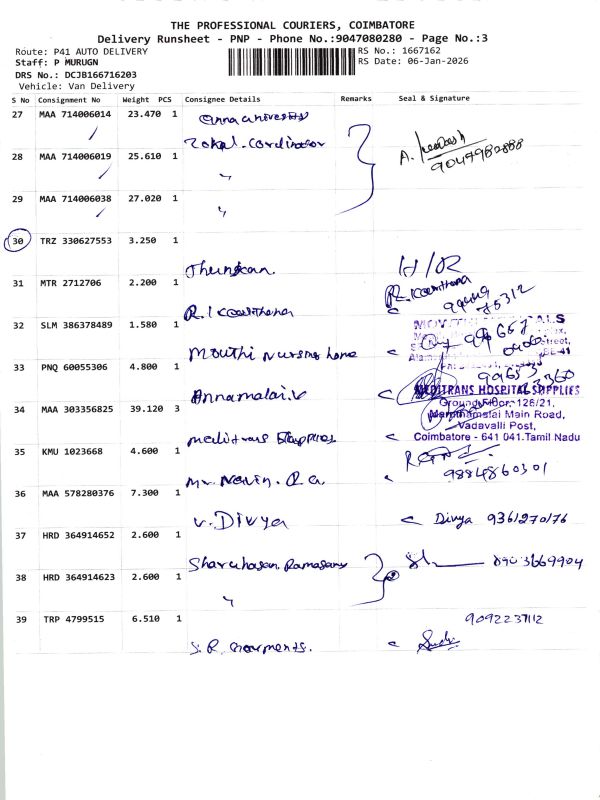 THE PROFESSIONAL COURIERS, COIMBATORE
Delivery Runsheet - PNP - Phone No.:9047080280 - Page No.:3
Route: P41 AUTO DELIVERY
RS No.: 1667162
Staff: P MURUGN
RS Date: 06-Jan-2026
DRS No.: DCJB166716203
Vehicle: Van Delivery
S No Consignment No Weight PCS Consignee Details Remarks Seal & Signature
27 MAA 714006014 23.470 1 Anna university
Zonal. Cordinator
A. 9047982888
28 MAA 714006019 25.610 1 "
29 MAA 714006038 27.020 1 "
30 TRZ 330627553 3.250 1
H/R
31 MTR 2712706 2.200 1
R.
32 SLM 386378489 1.580 1
Mouthi Nursing home
33 PNQ 60055306 4.800 1
Annamalai.V
34 MAA 303356825 39.120 3
MEDITRANS HOSPITAL SUPPLIES
Ground Floor, 126/21,
Marudhamalai Main Road,
Vadavalli Post,
Coimbatore - 641 041.Tamil Nadu
35 KMU 1023668 4.600 1
Mr. Navin. R.a.
9884860301
36 MAA 578280376 7.300 1
V. Divya
Divya 9361270176
37 HRD 364914652 2.600 1
Sharuhasan Ramasamy
8903669904
38 HRD 364914623 2.600 1 "
39 TRP 4799515 6.510 1
9092237112
S.R. Garments.